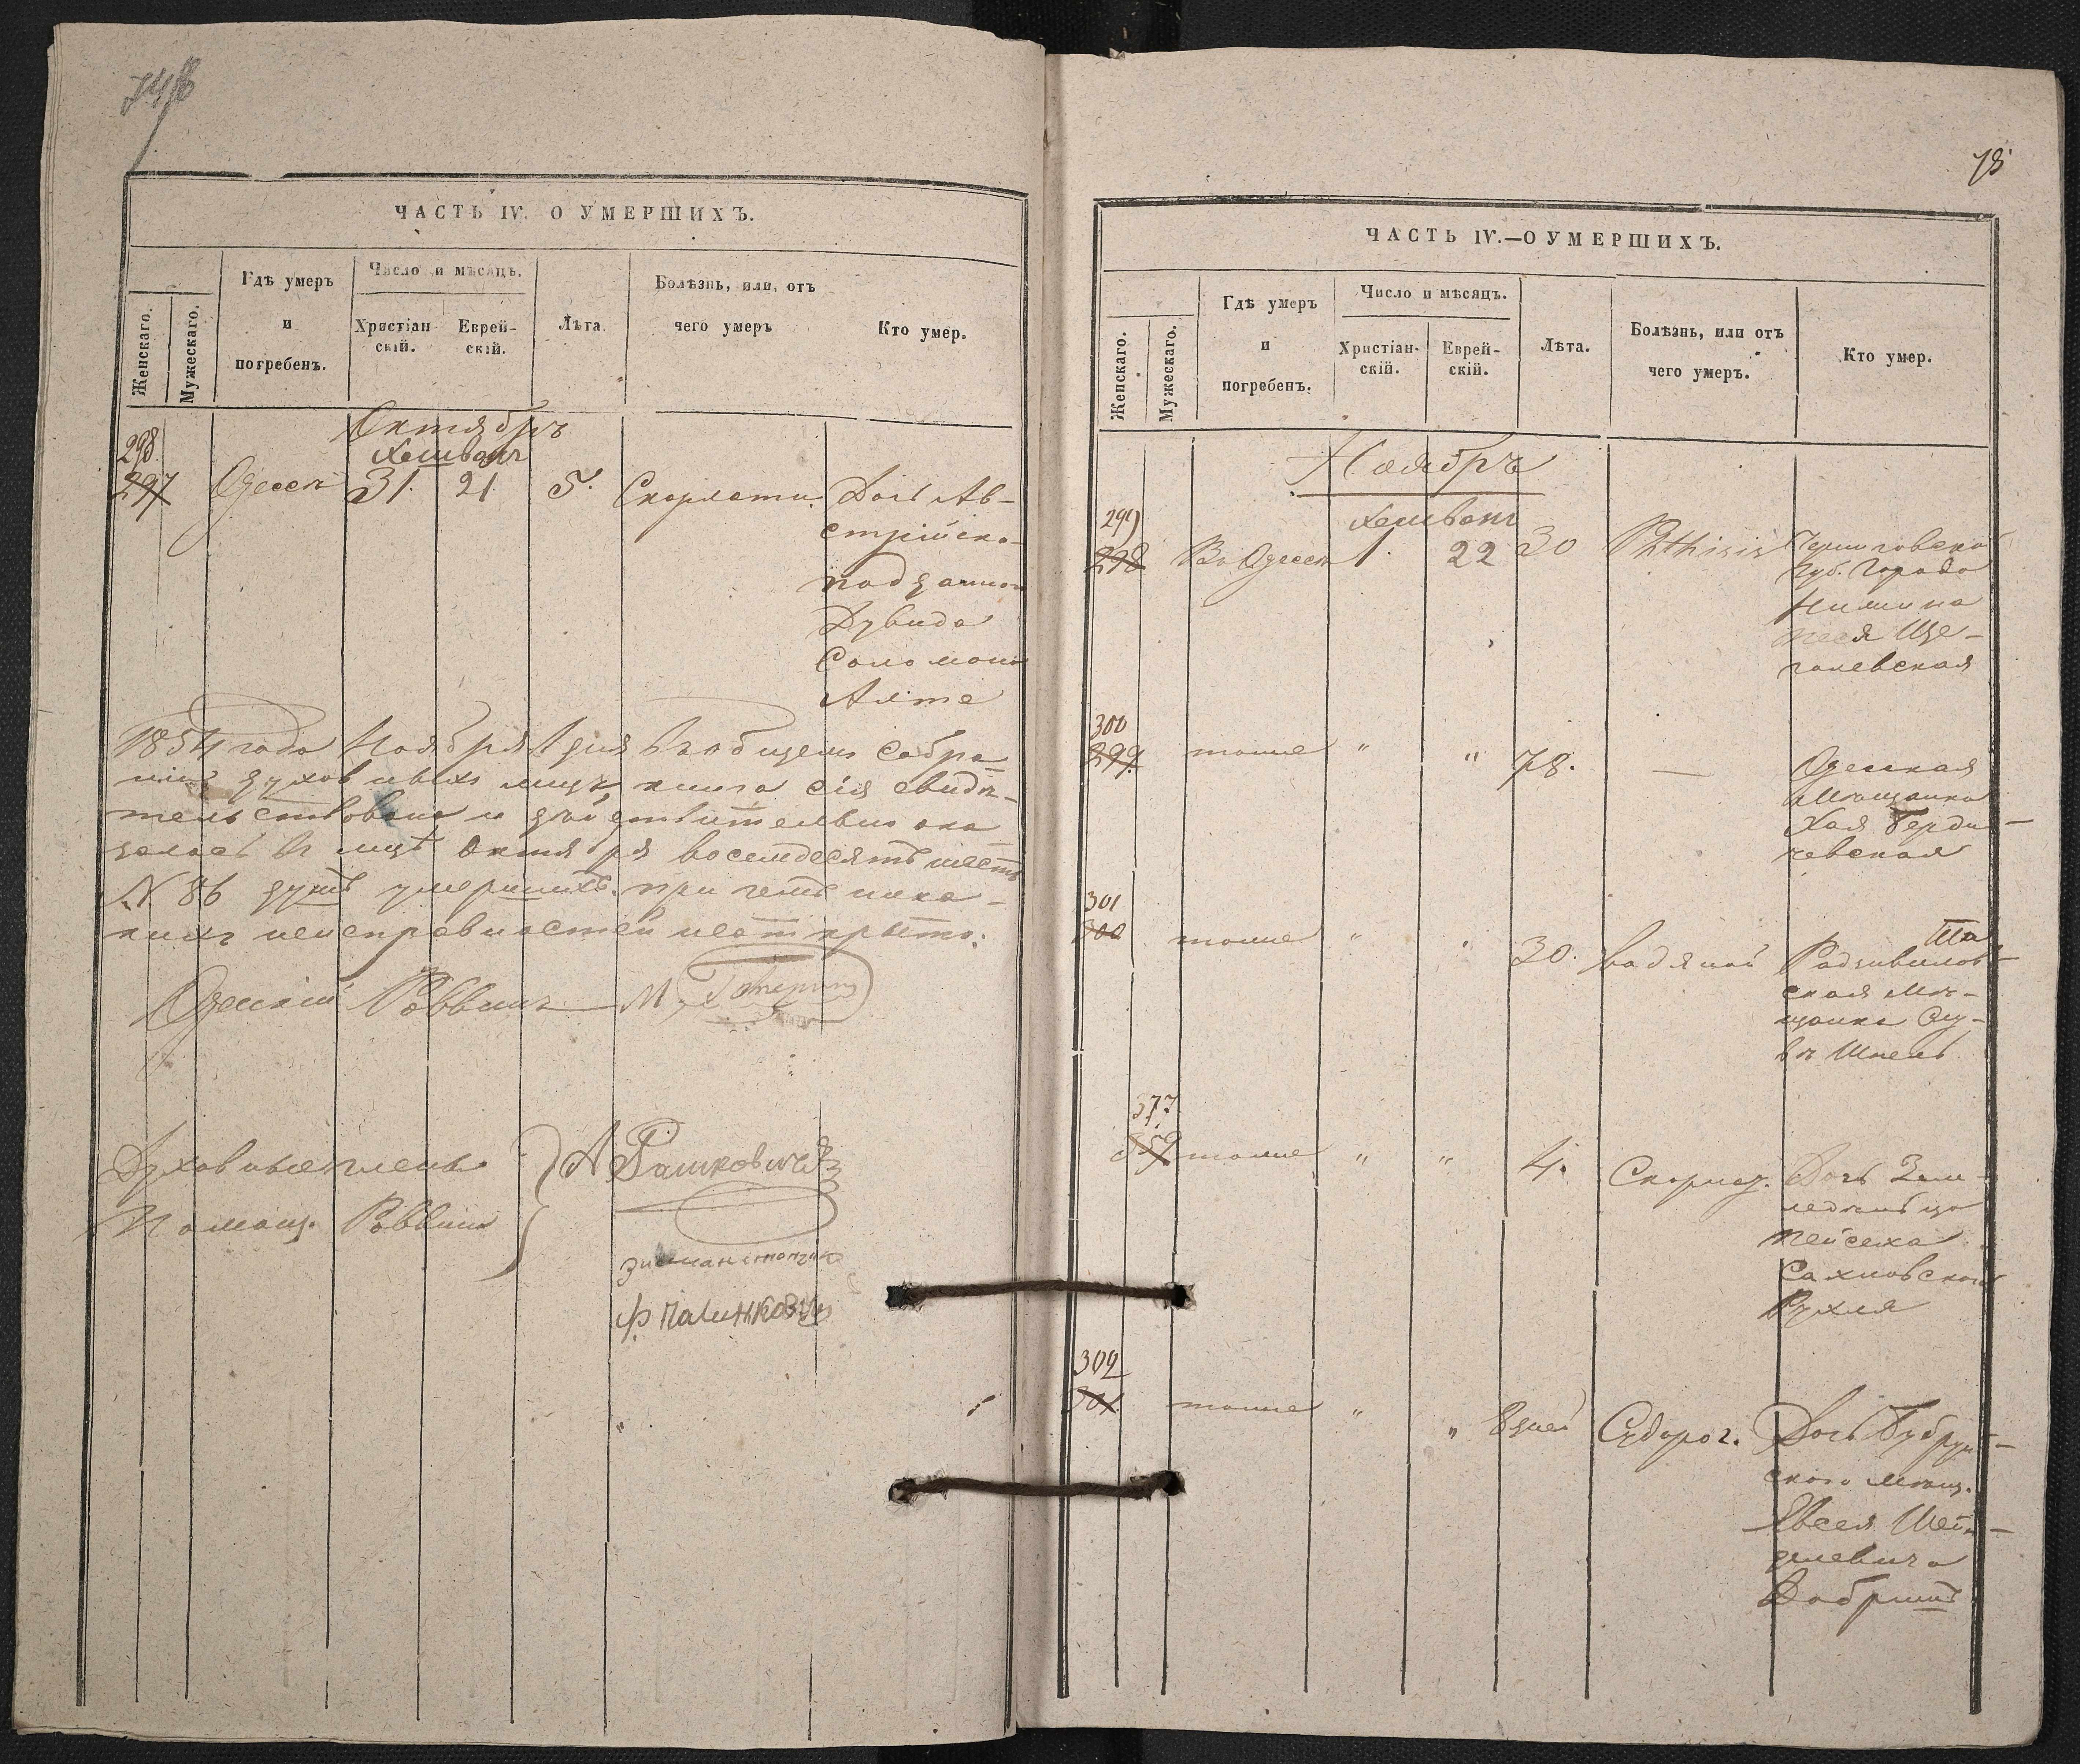 ЧАСТЬ IV. О УМЕРШИХЪ.
Женскаго.
Мужескаго.
Гдѣ умеръ
и
погребенъ.
Число и мѣсяцъ.
Христіан-
скій.
Еврей-
скій.
Лѣта.
Болѣзнь, или, отъ
чего умеръ
Кто умер.
Октябрь
Хешванъ
298.
297 Одессѣ 31. 21. 5. Скорлати. Дочь Ав-
стрійско-
подданного
Дувида
Соломона
Алте
1854 года Ноября 1 дня въ общемъ собра-
ніи духовныхъ лицъ книга сія свидѣ-
тельствована и дѣйствительно ока
залось въ мцѣ Октября восемдесятъ шесть
№ 86 душъ умершихъ. при чемъ ника-
кихъ неисправностей не открыто.
Одескій Раввинъ М.
Духовные члены
Помощ. Раввина
А Рашковичъ
78
ЧАСТЬ IV.—О УМЕРШИХЪ.
Женскаго.
Мужескаго.
Гдѣ умеръ
и
погребенъ.
Число и мѣсяцъ.
Христіан-
скій.
Еврей-
скій.
Лѣта.
Болѣзнь, или отъ
чего умеръ.
Кто умер.
Ноябрь
Хешванъ
299
298 Въ Одессѣ 1. 22 30 Phthisis Черниговской
Губ. Города
Нежина
Песя Ще-
голевская
300
299. тоже " " 78. — Одеская
Мѣщанка
Хая Берди-
чевская
301
300 тоже " " 30. водяной Радзивилов-
ская Мѣ-
щанка
377
359 тоже " " 4. Скорлат. Дочь Зем-
ледѣльца
Пейсеха
Сахновского
Рухля
302
301 тоже " " 8 дней Судорог. Дочь Бобруй-
ского Мѣщ.
Евсея Шей-
делевича
Добришъ